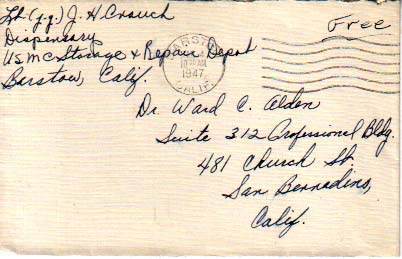 Lt (j.g.) J. H. Crouch
Dispensary
USMC Storage & Repair Depot
Barstow, Calif.
BARSTOW
1947
CALIF.
Free
Dr. Ward C. Alden
Suite 312 Professional Bldg.
481 Church St.
San Bernadino,
Calif.